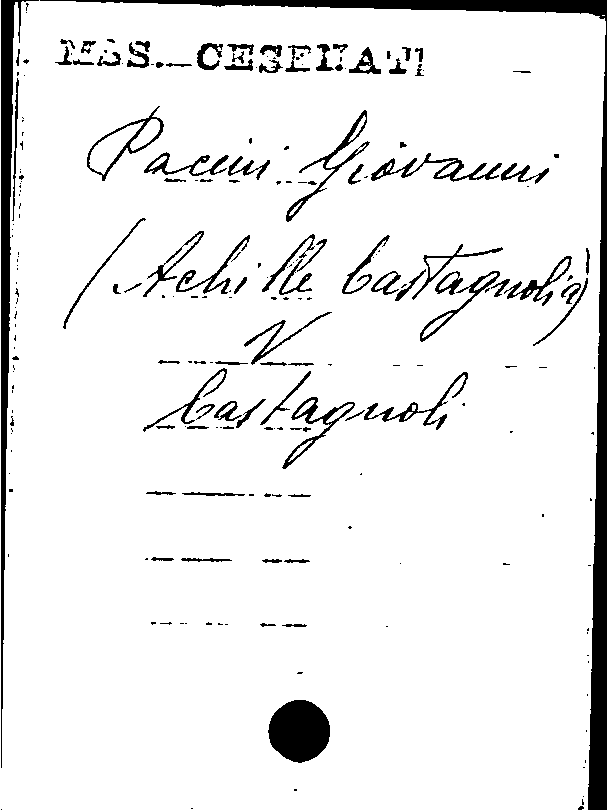 MSS. CESENATI
Pacini Giovanni
(Achille Castagnoli)
V
Castagnoli